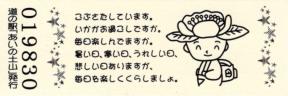 019830
道の駅、あいの土山、発行
ろさをたしています。
いかがお過ごしですか。
毎日楽しんでますか。
暑い日、寒い日、うれしい日、
悲しい日ありますが、
毎日を楽しくくらしましょ。